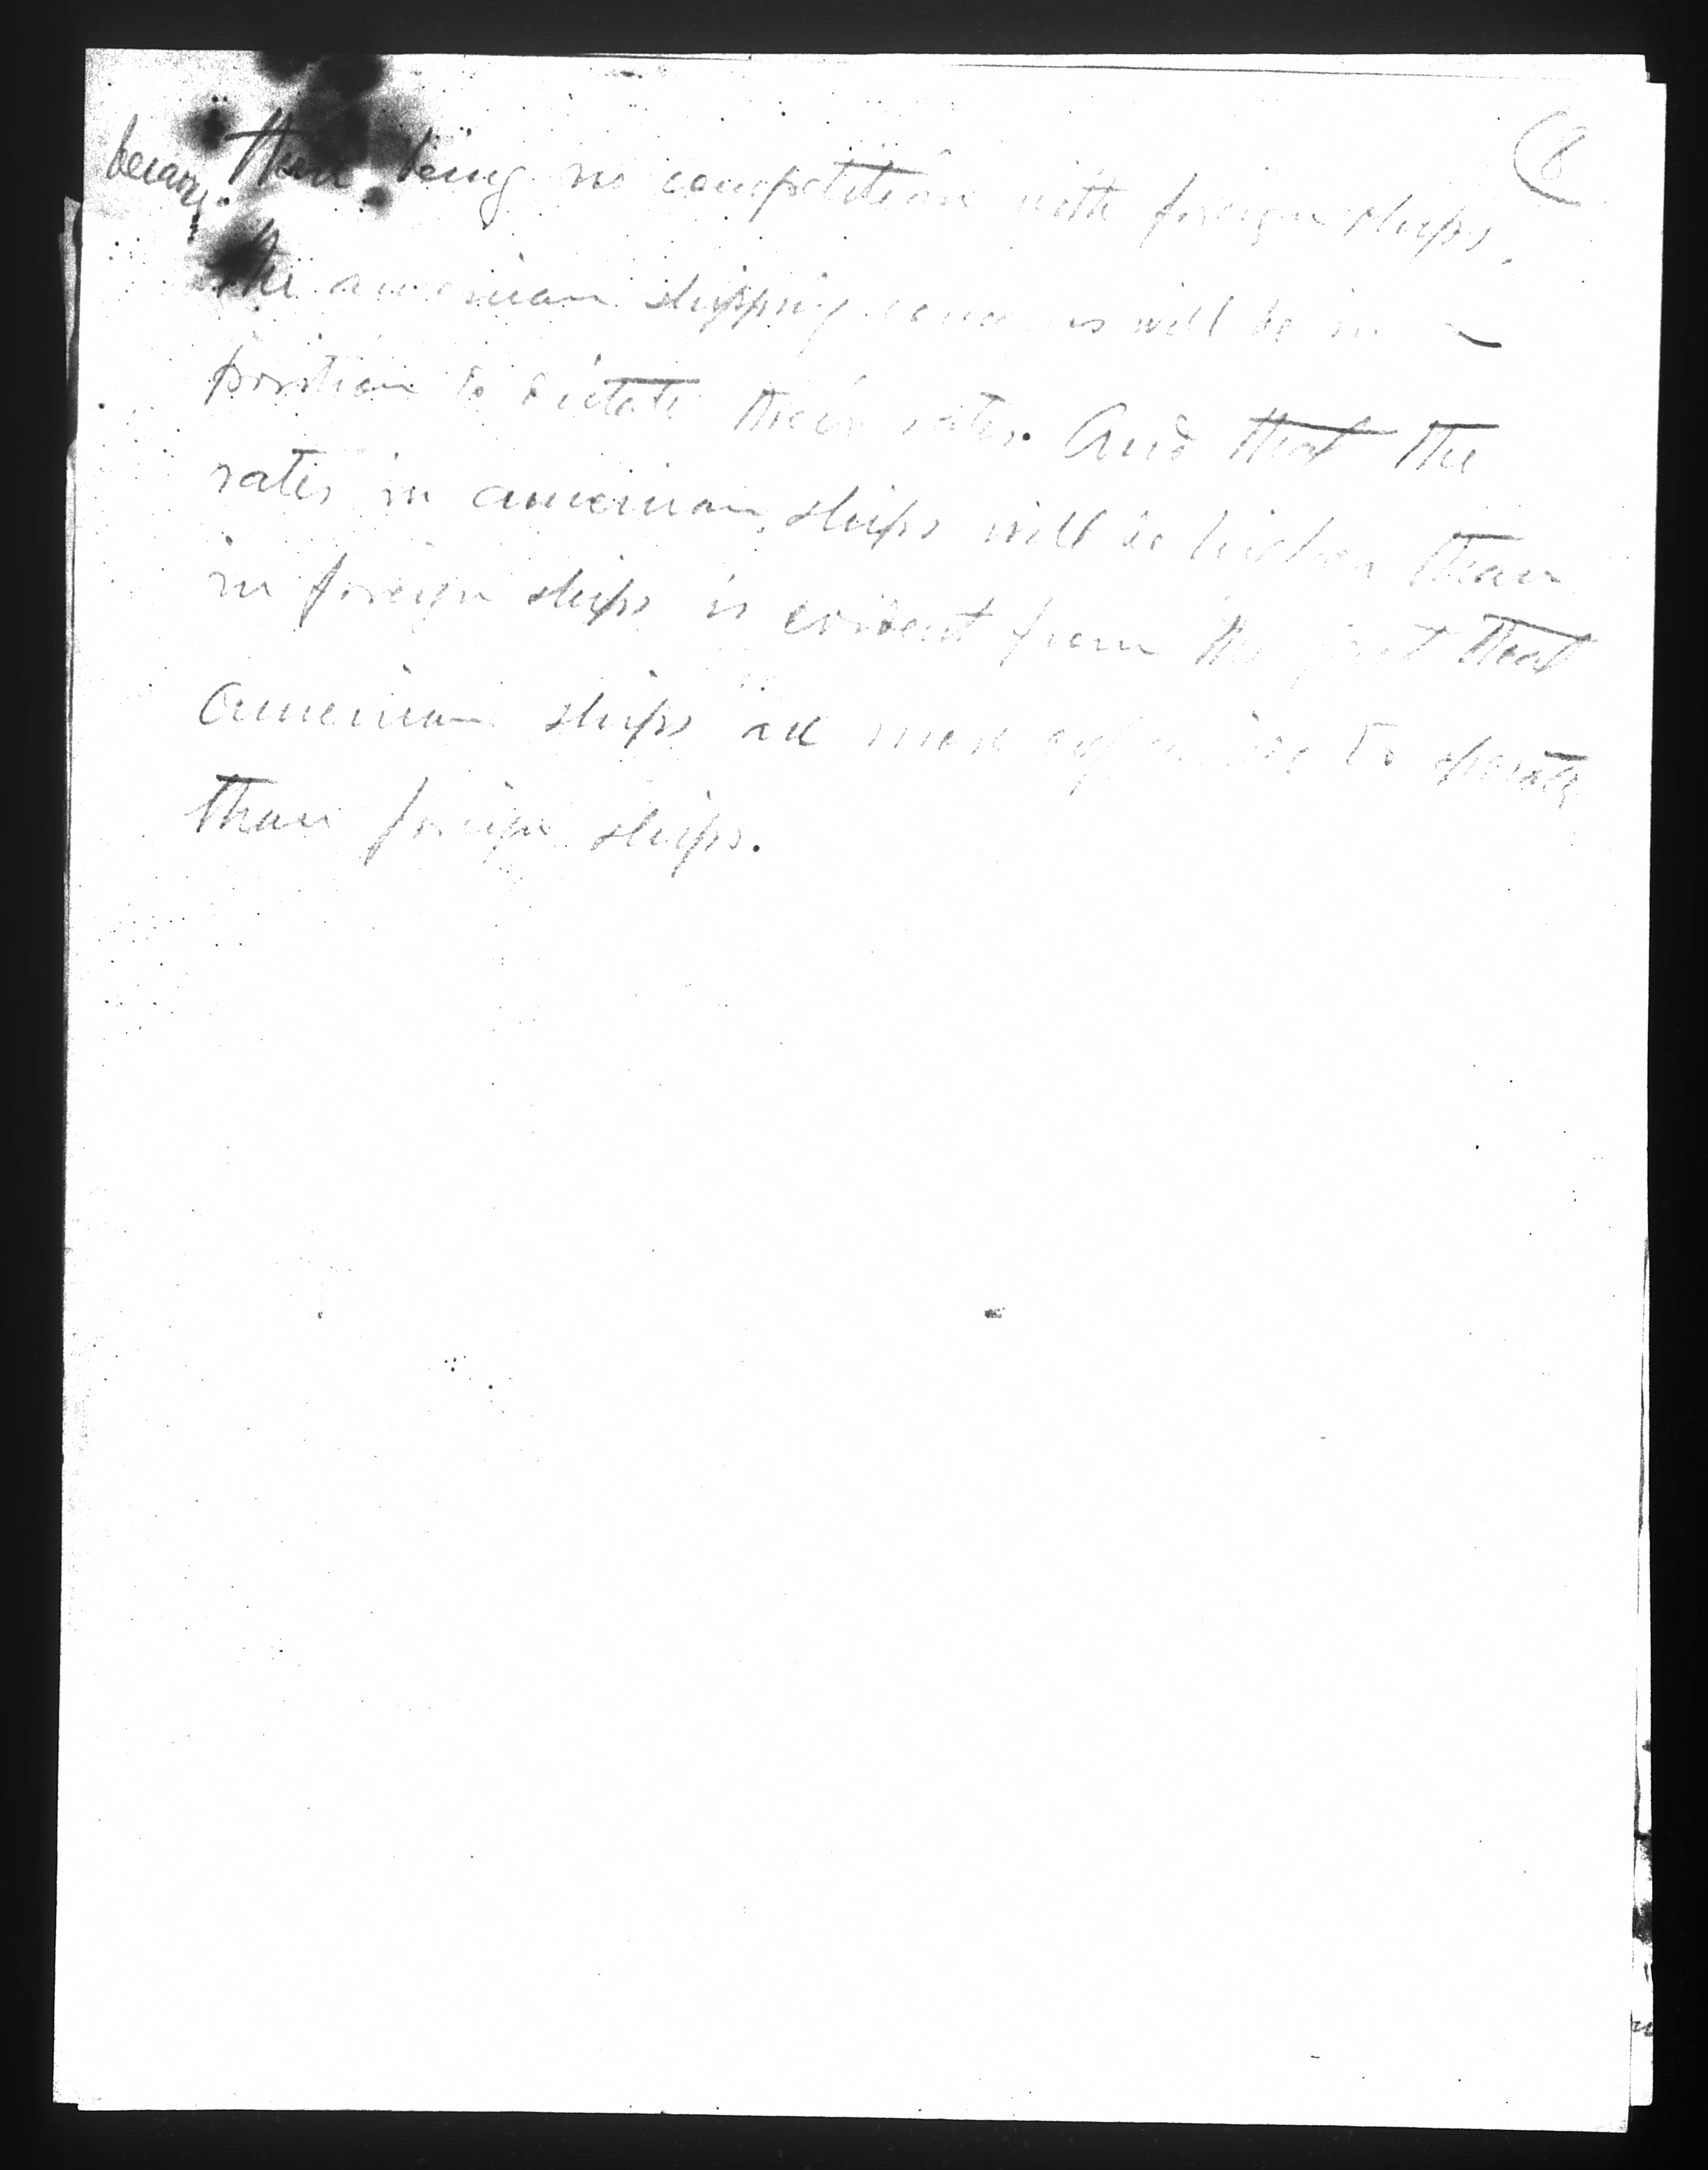 6
because there being no competition with foreign ships,
the american shipping concerns will be in a
position to dictate their rates. And that the
rates in american ships will be higher than
in foreign ships is evident from the fact that
American ships are more expensive to operate
than foreign ships.